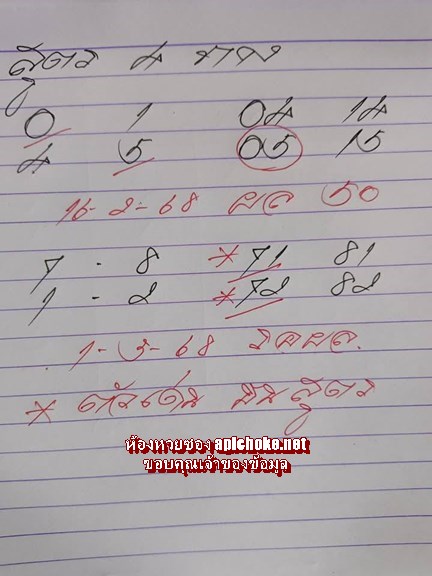 สูตร 4 ทาง
0 1 04 14
4 5 05 15
16-2-68 ผล 50
7 - 8 *71 81
1 - 2 *72 82
1-3-68 รอผล.
* ตัวเด่น บนสูตร
ห้องหวยซอง apichoke.net
ขอบคุณเจ้าของข้อมูล